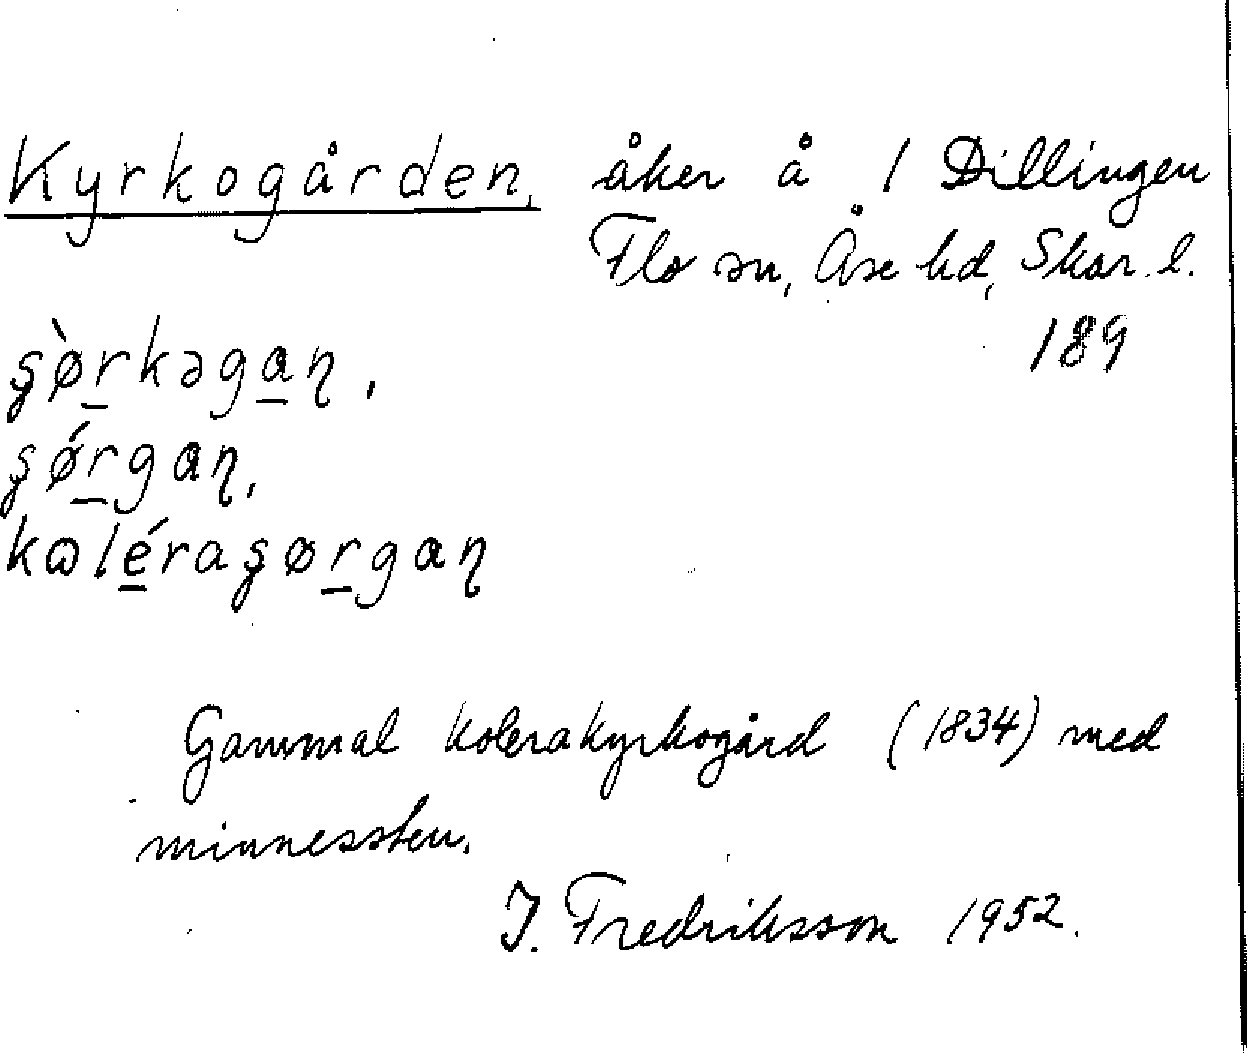 Kyrkogården, åker å 1 Dillingen
Flo sn, Åse hd, Skar. l.
189
ş̡ø̀rkəgaꞃ,
ş̡ǿrgaꞃ,
kɷléraş̡ørgaꞃ
Gammal kolerakyrkogård (1834) med
minnessten.
J. Fredriksson 1952.